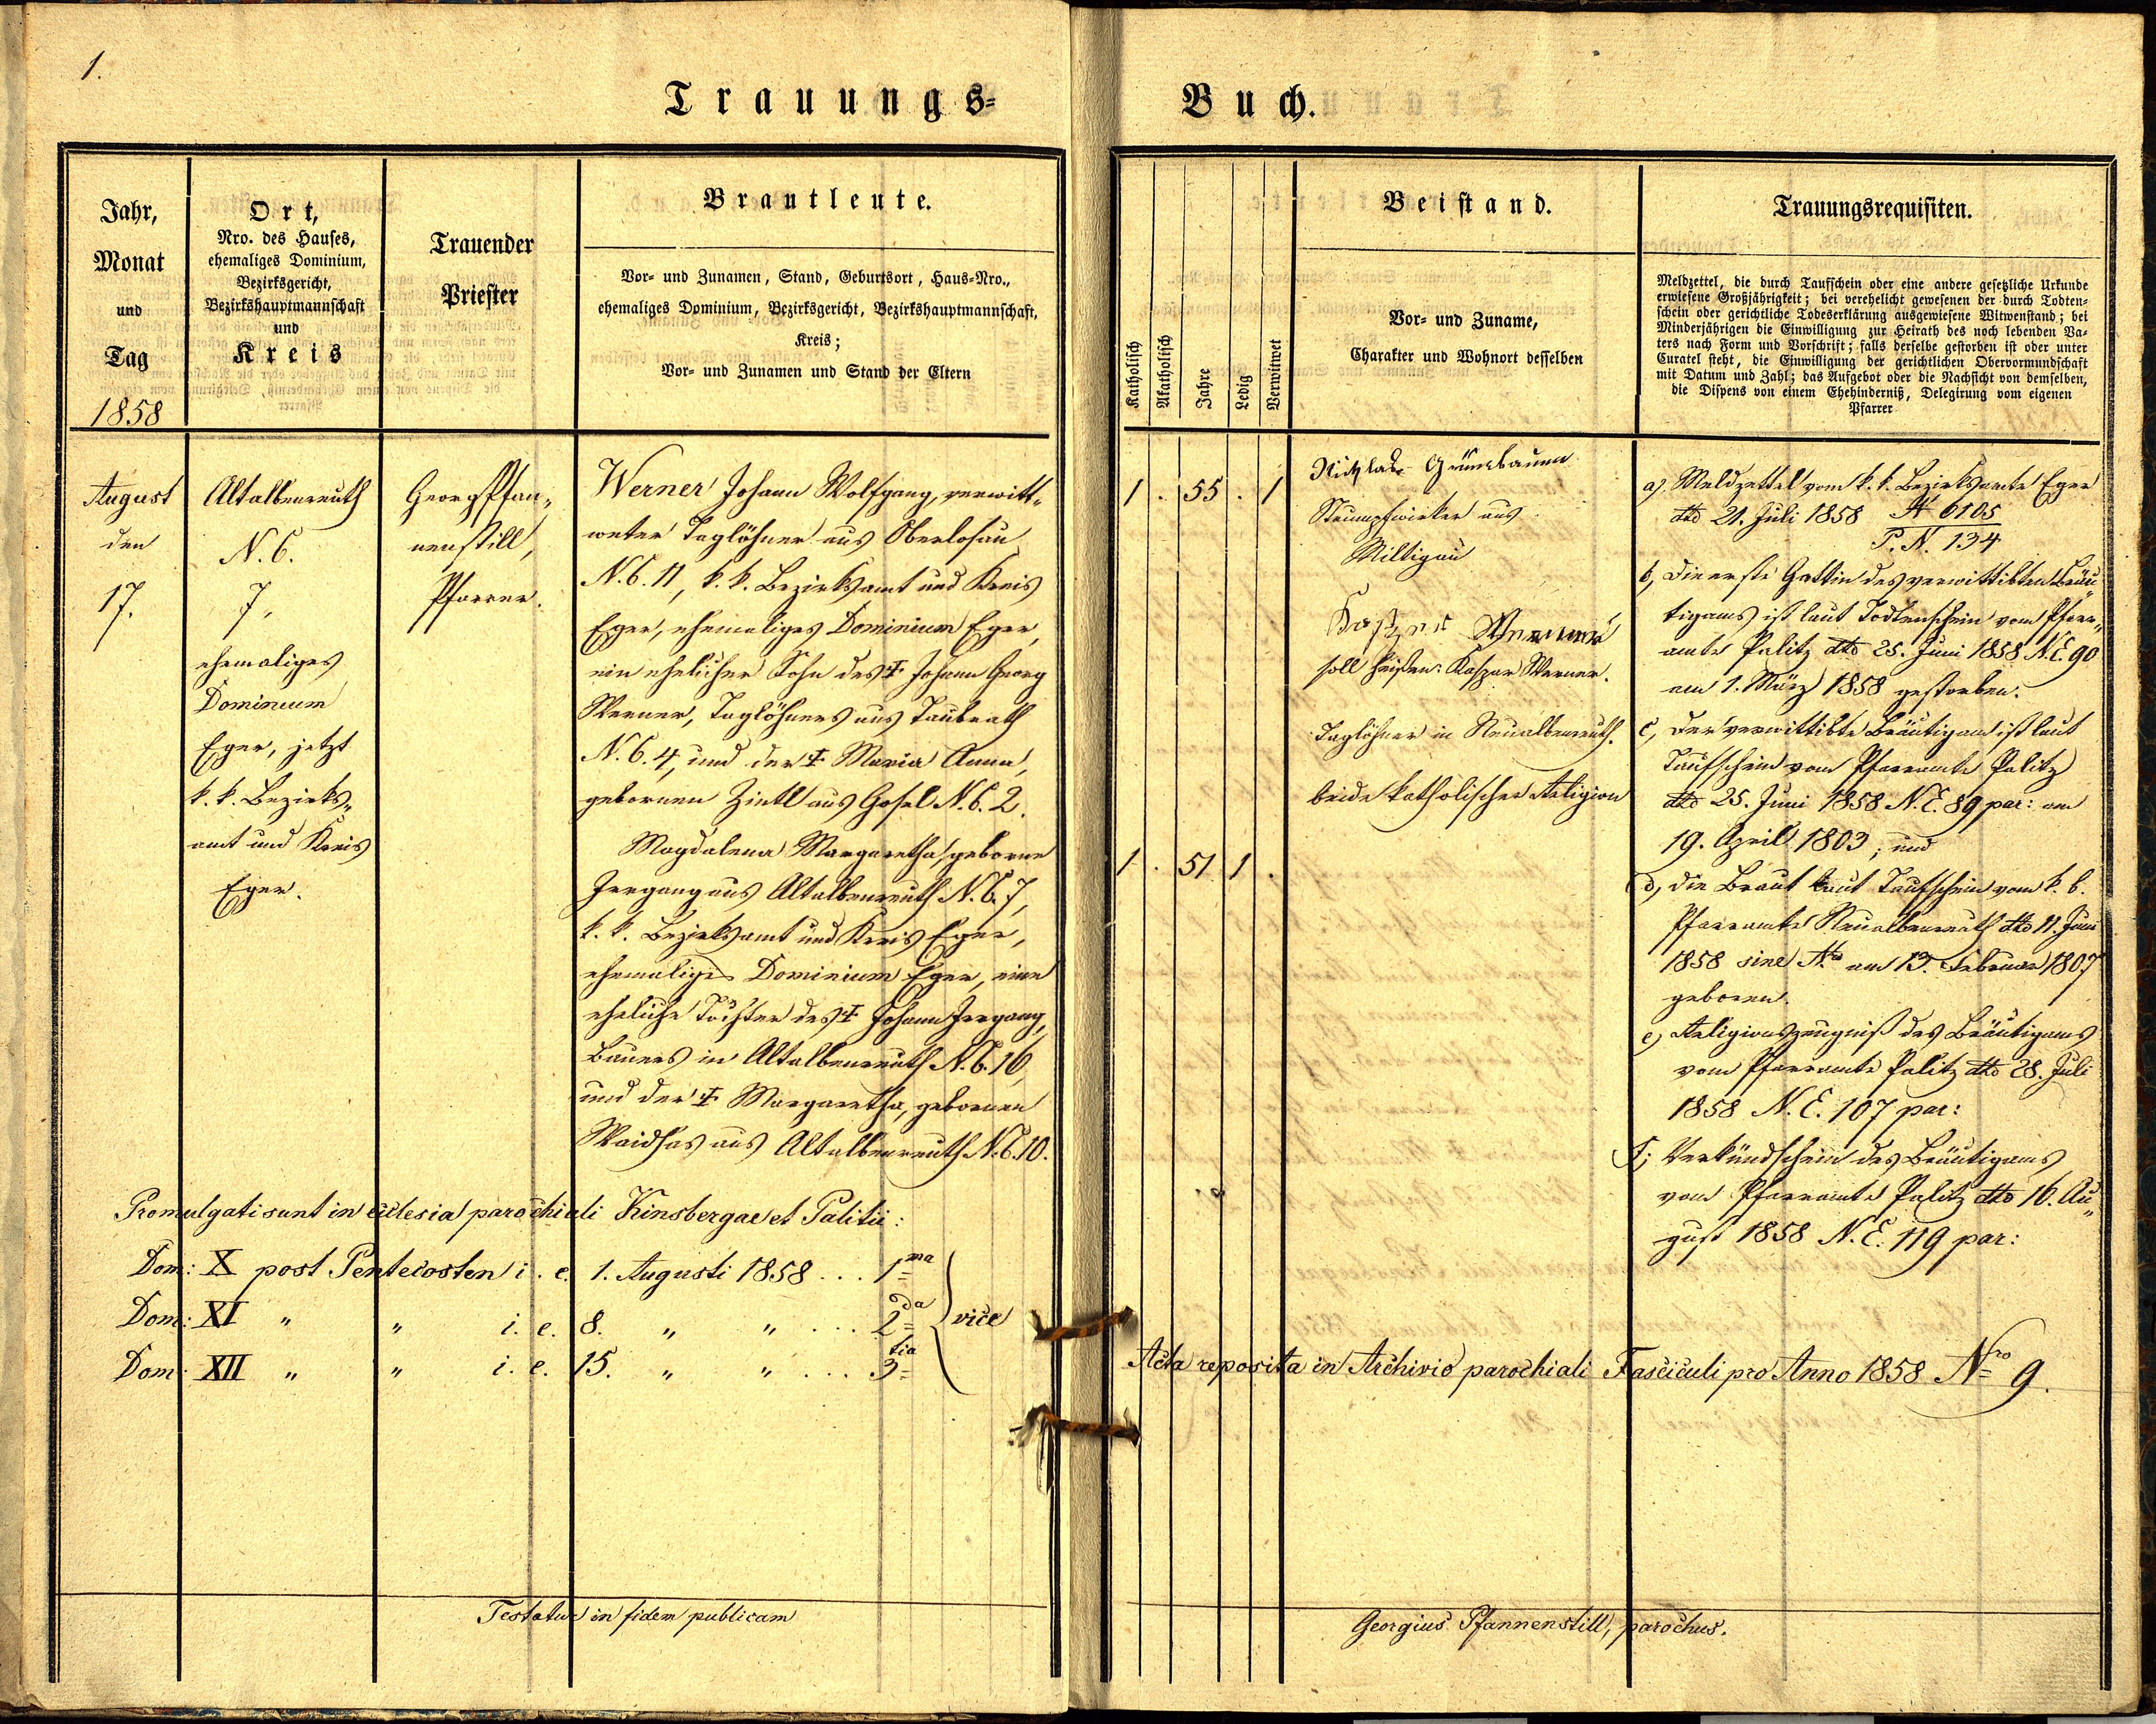 1.
Trauungs-
Buch.
Jahr,
Monat
und
Tag
1858
Ort,
Nro. des Hauses,
ehemaliges Dominium,
Bezirksgericht,
Bezirkshauptmannschaft
und
Kreis
Trauender
Priester
Brautleute.
Vor- und Zunamen, Stand, Geburtsort, Haus-Nro.,
ehemaliges Dominium, Bezirksgericht, Bezirkshauptmannschaft,
Kreis;
Vor- und Zunamen und Stand der Eltern
Katholisch
Akatholisch
Jahre
Ledig
Verwitwet
Beistand.
Vor- und Zuname,
Charakter und Wohnort desselben
Trauungsrequisiten.
Meldzettel, die durch Taufschein oder eine andere gesetzliche Urkunde
erwiesene Großjährigkeit; bei verehelicht gewesenen der durch Todten-
schein oder gerichtliche Todeserklärung ausgewiesene Witwenstand; bei
Minderjährigen die Einwilligung zur Heirath des noch lebenden Va-
ters nach Form und Vorschrift; falls derselbe gestorben ist oder unter
Curatel steht, die Einwilligung der gerichtlichen Obervormundschaft
mit Datum und Zahl; das Aufgebot oder die Nachsicht von demselben,
die Dispens von einem Ehehinderniß, Delegirung vom eigenen
Pfarrer
August
den
17.
Altalbenreuth
N. C.
7,
ehemaliges
Dominium
Eger, jetzt
k. k. Bezirks„
amt und Kreis
Eger.
Georg Pfan„
nenstill,
Pfarrer.
Werner Johann Wolfgang, verwitt„
weter Taglöhner aus Oberlosau
N. C. 11, k. k. Bezirksamt und Kreis
Eger, ehemaliges Dominium Eger,
ein ehelicher Sohn des † Johann Georg
Werner, Taglöhners aus Taubrath
N. C. 4, und der † Maria Anna,
gebornen Zintl aus Gosel N. C. 2.
Magdalena Margaretha, geborne
Irrgang aus Altalbenreuth N. C. 7,
k. k. Bezirksamt und Kreis Eger,
ehemaliges Dominium Eger, eine
eheliche Tochter des † Johann Irrgang,
Bauers in Altalbenreuth N. C. 16,
und der † Margaretha, gebornen
Waidhas aus Altalbenreuth N. C. 10.
1 . 55 . 1
1 . 51 1 .
Grünbaum
Strumpfwirker aus
Miltigau
soll heißen: Kaspar Werner.
Taglöhner in Neualbenreuth.
beide katholischer Religion
a) Meldzettel vom k. k. Bezirksamte Eger
dto 21. Juli 1858 N 6105
P. N. 134
b, Die erste Gattin des verwittibten Bräu„
tigams ist laut Todtenschein vom Pfarr„
amte Palitz dto 25. Juni 1858 N. E. 90
am 1. März 1858 gestorben.
c, Der verwittibte Bräutigam ist laut
Taufschein vom Pfarramte Palitz
dto 25. Juni 1858 N. E. 89 par: am
19. April 1803, und
d, die Braut laut Taufschein vom k. b.
Pfarramte Neualbenreuth dto 11. Juni
1858 sine Nro am 13. Februar 1807
geboren.
e, Religionszeugniß des Bräutigams
vom Pfarramte Palitz dto 28. Juli
1858 N. E. 107 par:
f, Verkündschein des Bräutigams
vom Pfarramte Palitz dto 16. Au„
gust 1858 N. E. 119 par:
Promulgati sunt in ecclesia parochiali Kinsbergae et Palitii:
Dom: X post Pentecosten i. e. 1. Augusti 1858 . . . 1ma
Dom: XI „ „ i. e. 8. „ „ . . . 2da
vice
Dom: XII „ „ i. e. 15. „ „ . . . 3tia
Acta reposita in Archivio parochiali Fasciculi pro Anno 1858 Nro 9.
Testatur in fidem publicam
Georgius Pfannenstill, parochus.